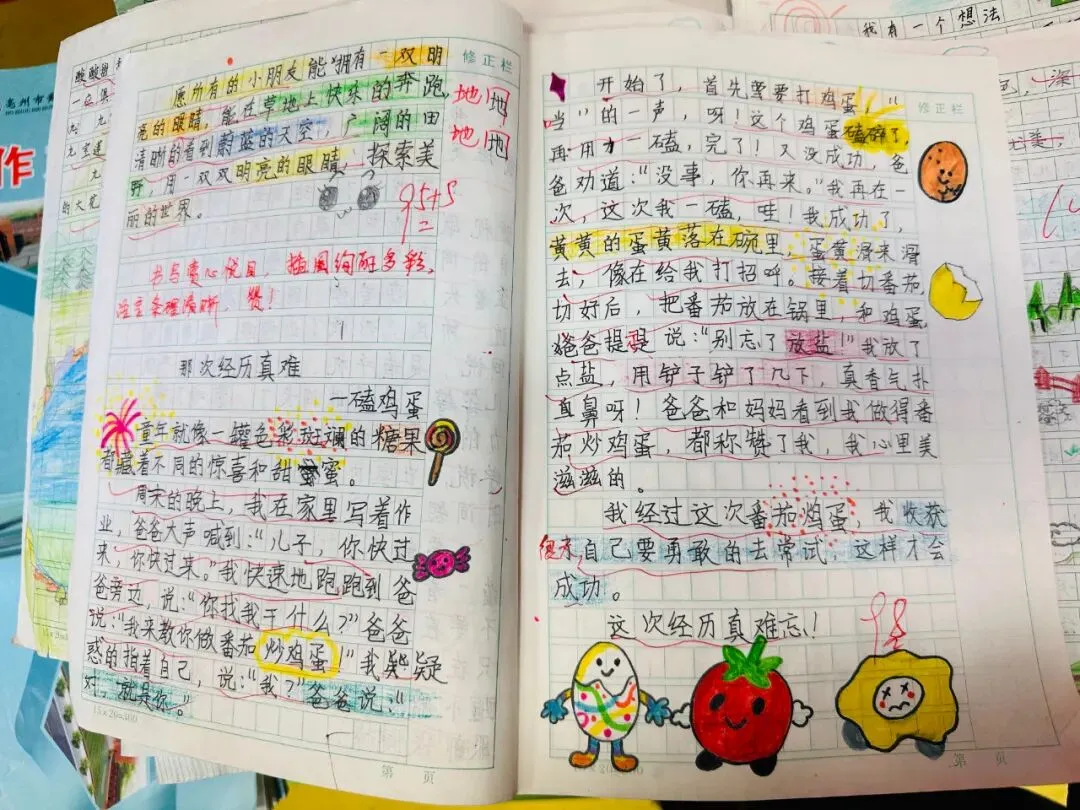 愿所有的小朋友能拥有一双明
亮的眼睛，能在草地上快来的奔跑，
清晰的看到蔚蓝的天空，广阔的田
野，用一双双明亮的眼睛，探索美
丽的世界。
修正栏
地地
地地
95+5
书写赏心悦目，插图绚烂多彩，
注意条理清晰，赞！
那次经历真难
—磕鸡蛋
童年就像一罐色彩斑斓的糖果
都藏着不同的惊喜和甜蜜。
周末的晚上，我在家里写着作
业，爸爸大声喊到：“儿子，你快过
来，你快过来。”我快速地跑跑到爸
爸旁边，说：“你找我干什么？”爸爸
说：“我来教你做番茄炒鸡蛋！”我疑疑
惑的指着自己，说：“我？”爸爸说：“
对，就是你。”
15×20=300
第 页
开始了，首先要要打鸡蛋，“
当”的一声，呀！这个鸡蛋磕碎了，
再用力一磕，完了！又没成功，爸
爸劝道：“没事，你再来。”我再在一
次，这次我一磕，哇！我成功了，
黄黄的蛋黄落在碗里，蛋黄滑来滑
去，像在给我打招呼。接着切番茄，
切好后，把番茄放在锅里，和鸡蛋，
爸爸提醒说：“别忘了放盐！”我放了
点盐，用铲子铲了几下，真香气扑
直鼻呀！爸爸和妈妈看到我做得番
茄炒鸡蛋，都称赞了我，我心里美
滋滋的。
我经过这次番茄鸡蛋，我收获
自己要勇敢的去常试，这样才会
成功。
这次经历真难忘！
98
修正栏
第 页
我有一个想法